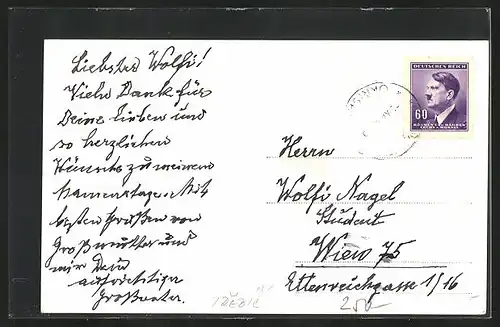 Liebster Wolfi!
Viele Dank für
Deine lieben und
so herzlichen
Wünsche zu meinem
Namenstage. Mit
besten Grüßen von
Großmutter und
mir Dein
aufrichtiger
Großvater.
DEUTSCHES REICH
60
BÖHMEN u. MÄHREN
ČECHY a MORAVA
Herrn
Wolfi Nagel
Student
Wien 75
Ettenreichgasse 1/16
250